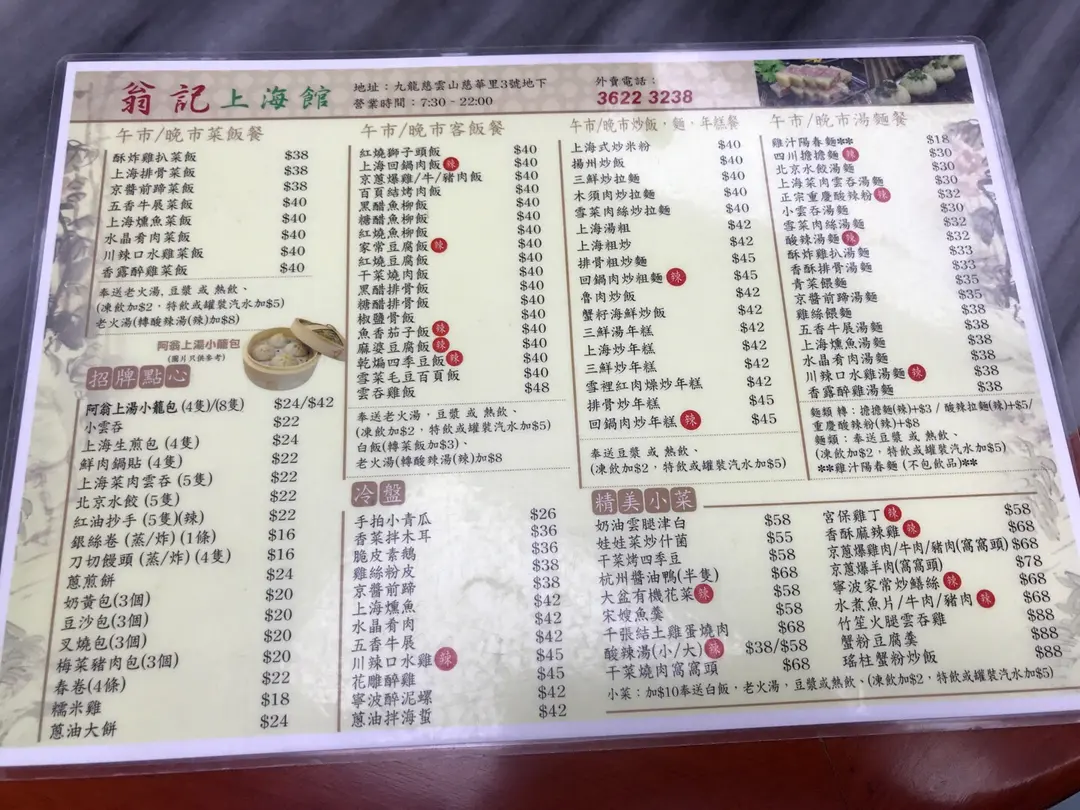 翁記上海館
地址：九龍慈雲山慈華里3號地下
營業時間：7:30 - 22:00
外賣電話：
3622 3238
午市/晚市菜飯餐
酥炸雞扒菜飯 $38
上海排骨菜飯 $38
京醬前蹄菜飯 $38
五香牛展菜飯 $40
上海燻魚菜飯 $40
水晶肴肉菜飯 $40
川辣口水雞菜飯 $40
香露醉雞菜飯 $40
奉送老火湯, 豆漿 或 熱飲、
(凍飲加$2，特飲或罐裝汽水加$5)
老火湯(轉酸辣湯(辣)加$8)
阿翁上湯小籠包
(圖片只供參考)
招牌點心
阿翁上湯小籠包 (4隻)/(8隻) $24/$42
小雲吞 $22
上海生煎包 (4隻) $24
鮮肉鍋貼 (4隻) $22
上海菜肉雲吞 (5隻) $22
北京水餃 (5隻) $22
紅油抄手 (5隻)(辣) $22
銀絲卷 (蒸/炸) (1條) $16
刀切饅頭 (蒸/炸) (4隻) $16
蔥煎餅 $24
奶黃包(3個) $20
豆沙包(3個) $20
叉燒包(3個) $20
梅菜豬肉包(3個) $20
春卷(4條) $22
糯米雞 $18
蔥油大餅 $24
午市/晚市客飯餐
紅燒獅子頭飯 $40
上海回鍋肉飯 辣 $40
京蔥爆雞/牛/豬肉飯 $40
百頁結烤肉飯 $40
黑醋魚柳飯 $40
糖醋魚柳飯 $40
紅燒魚柳飯 $40
家常豆腐飯 辣 $40
紅燒豆腐飯 $40
干菜燒肉飯 $40
黑醋排骨飯 $40
糖醋排骨飯 $40
椒鹽骨飯 $40
魚香茄子飯 辣 $40
麻婆豆腐飯 辣 $40
乾煸四季豆飯 辣 $40
雪菜毛豆百頁飯 $40
雲吞雞飯 $48
奉送老火湯，豆漿 或 熱飲、
(凍飲加$2，特飲或罐裝汽水加$5)
白飯(轉菜飯加$3)、
老火湯(轉酸辣湯(辣)加$8
冷盤
手拍小青瓜 $26
香菜拌木耳 $36
脆皮素鵝 $36
雞絲粉皮 $38
京醬前蹄 $38
上海燻魚 $42
水晶肴肉 $42
五香牛展 $42
川辣口水雞 辣 $45
花雕醉雞 $45
寧波醉泥螺 $42
蔥油拌海蜇 $42
午市/晚市炒飯，麵，年糕餐
上海式炒米粉 $40
揚州炒飯 $40
三鮮炒拉麵 $40
木須肉炒拉麵 $40
雪菜肉絲炒拉麵 $40
上海湯粗 $42
上海粗炒 $42
排骨粗炒麵 $45
回鍋肉炒粗麵 辣 $45
魯肉炒飯 $42
蟹籽海鮮炒飯 $42
三鮮湯年糕 $42
上海炒年糕 $42
三鮮炒年糕 $42
雪裡紅肉燥炒年糕 $42
排骨炒年糕 $45
回鍋肉炒年糕 辣 $45
奉送豆漿 或 熱飲、
(凍飲加$2，特飲或罐裝汽水加$5)
午市/晚市湯麵餐
雞汁陽春麵** $18
四川擔擔麵 辣 $30
北京水餃湯麵 $30
上海菜肉雲吞湯麵 $30
正宗重慶酸辣粉 辣 $32
小雲吞湯麵 $30
雪菜肉絲湯麵 $32
酸辣湯麵 辣 $32
酥炸雞扒湯麵 $33
香酥排骨湯麵 $33
青菜餵麵 $35
京醬前蹄湯麵 $35
雞絲餵麵 $38
五香牛展湯麵 $38
上海燻魚湯麵 $38
水晶肴肉湯麵 $38
川辣口水雞湯麵 辣 $38
香露醉雞湯麵 $38
麵類 轉：擔擔麵(辣)+$3 / 酸辣拉麵(辣)+$5/
重慶酸辣粉(辣)+$8
麵類：奉送豆漿 或 熱飲、
(凍飲加$2，特飲或罐裝汽水加$5)
**雞汁陽春麵 (不包飲品)**
精美小菜
奶油雲腿津白 $58
娃娃菜炒什菌 $55
干菜烤四季豆 $58
杭州醬油鴨(半隻) $68
大盆有機花菜 辣 $58
宋嫂魚羹 $58
千張結土雞蛋燒肉 $68
酸辣湯(小/大) 辣 $38/$58
干菜燒肉窩窩頭 $68
宮保雞丁 辣 $58
香酥麻辣雞 辣 $68
京蔥爆雞肉/牛肉/豬肉(窩窩頭) $68
京蔥爆羊肉(窩窩頭) $78
寧波家常炒鱔絲 辣 $68
水煮魚片/牛肉/豬肉 辣 $68
竹笙火腿雲吞雞 $88
蟹粉豆腐羹 $88
瑤柱蟹粉炒飯 $88
小菜：加$10奉送白飯，老火湯，豆漿或熱飲、(凍飲加$2，特飲或罐裝汽水加$5)